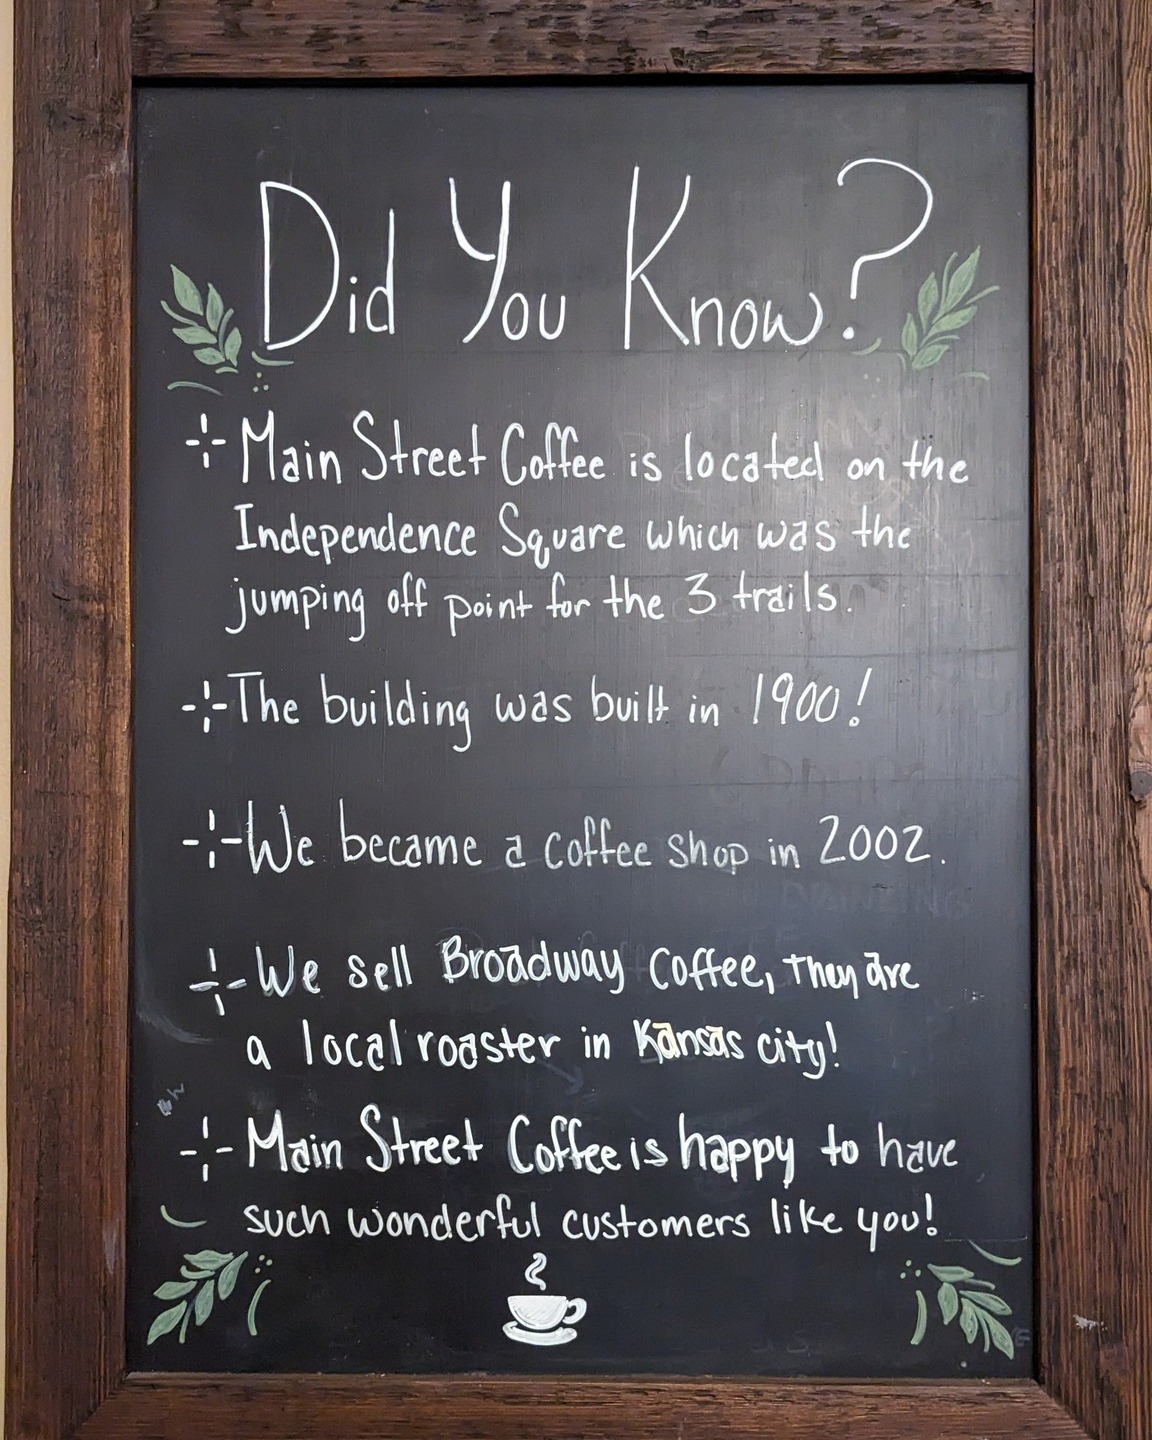 Did You Know?
Main Street Coffee is located on the
Independence Square which was the
jumping off point for the 3 trails.
The building was built in 1900!
We became a coffee shop in 2002.
We sell Broadway Coffee, they are
a local roaster in Kansas city!
Main Street Coffee is happy to have
such wonderful customers like you!